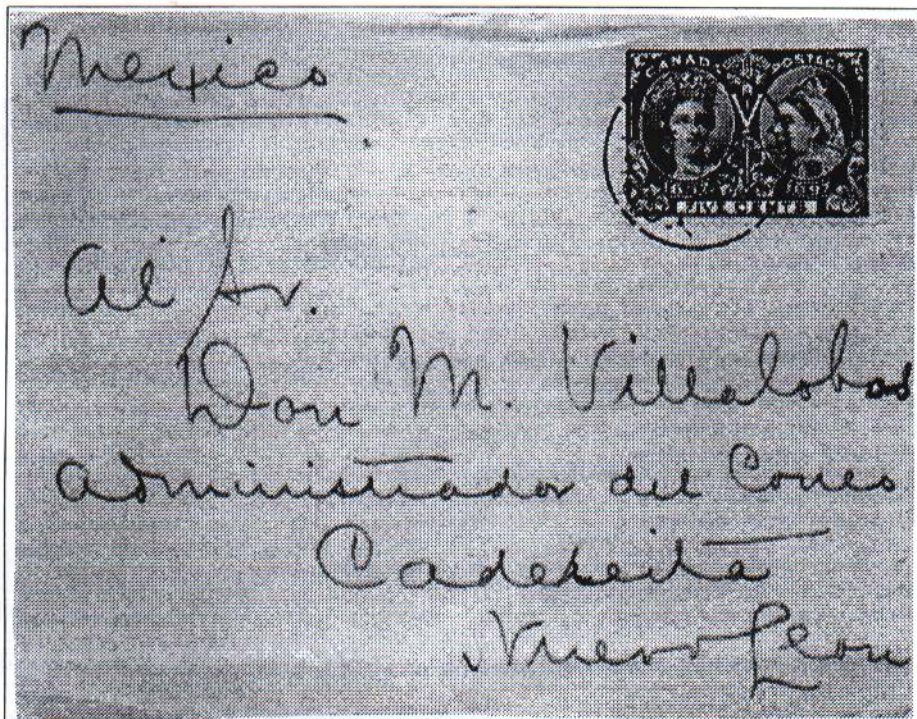 Mexico
CANADA POSTAGE
1837 1897
FIVE CENTS
Al Sr.
Don M. Villalobos
Administrador del Correo
Cadereita
Nuevo Leon